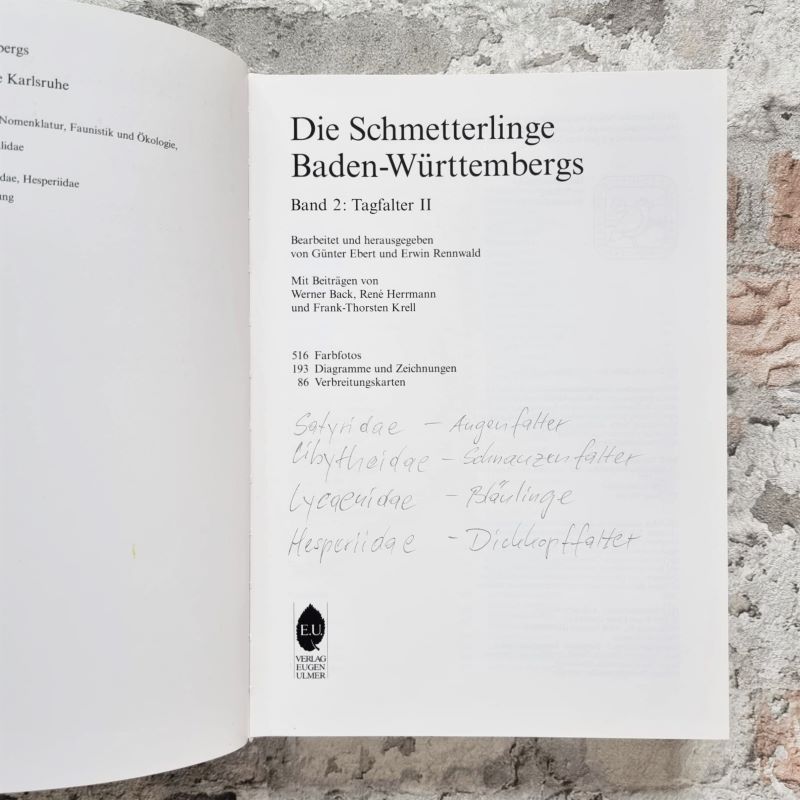 bergs
e Karlsruhe
Nomenklatur, Faunistik und Ökologie,
lidae
dae, Hesperiidae
ng
Die Schmetterlinge
Baden-Württembergs
Band 2: Tagfalter II
Bearbeitet und herausgegeben
von Günter Ebert und Erwin Rennwald
Mit Beiträgen von
Werner Back, René Herrmann
und Frank-Thorsten Krell
516 Farbfotos
193 Diagramme und Zeichnungen
86 Verbreitungskarten
Satyridae – Augenfalter
Libytheidae – Schnauzenfalter
Lycaenidae – Bläulinge
Hesperiidae – Dickkopffalter
E.U.
VERLAG
EUGEN
ULMER